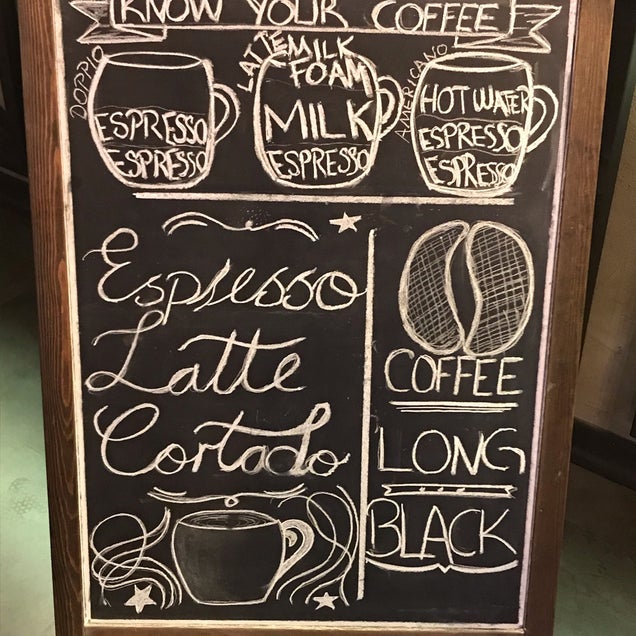 KNOW YOUR COFFEE!
DOPPIO
ESPRESSO
ESPRESSO
LATTE
MILK
FOAM
MILK
ESPRESSO
AMERICANO
HOT WATER
ESPRESSO
ESPRESSO
Espresso
Latte
Cortado
COFFEE
LONG
BLACK